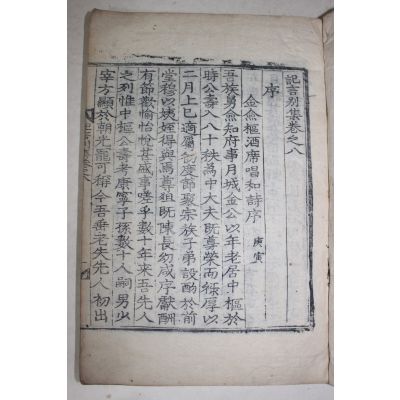 記言別集卷之八
序
金僉樞酒席唱和詩序 庚寅
吾族舅僉知府事月城金公以年老居中樞於
時公壽入八十秩為中大夫既尊榮而祿厚以
二月上巳適屬慶節聚宗族子弟設酌於前
堂穆以姨姪得與焉尊俎既陳長幼咸序獻酬
有節歡愉怡悅甚盛事嗟乎數十年來吾先人
之列惟中樞公壽考康寧子孫數十人嗣男
宰方顯於朝光寵可稱今吾垂老失先人初出